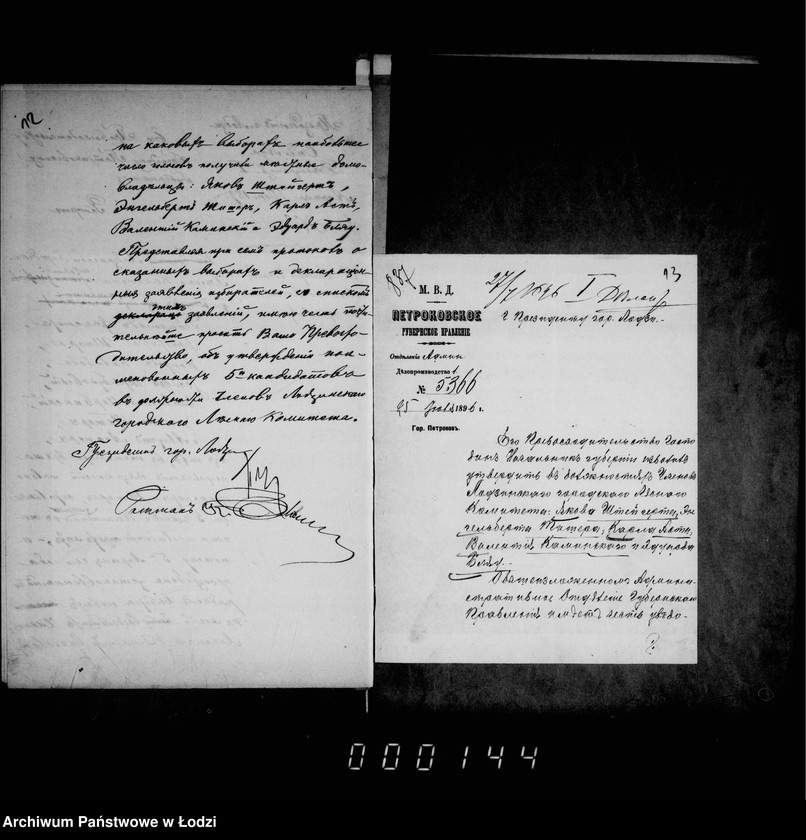 12
на каковыхъ выборахъ наибольшее
число голосовъ получили мѣстные домо-
владѣльцы: Яковъ Штейгертъ,
Энгельбертъ Титеръ, Карлъ Астъ,
Валентій Каминскій и Эдуардъ Бляу.
Представляя при семъ протоколъ о
сказанныхъ выборахъ и деклараціон-
ныя заявленія избирателей, со спискомъ
заявленій, имѣю честь почти-
тельнѣйше просить Ваше Превосхо-
дительство, объ утвержденіи поиме-
менованныхъ 5 кандидатовъ
въ должности Членовъ Лодзинскаго
городского Лѣснаго Комитета.
Президентъ гор. Лодзи
837
М. В. Д.
27/7 1896 I
13
ПЕТРОКОВСКОЕ
ГУБЕРНСКОЕ ПРАВЛЕНІЕ
Г. Президенту гор. Лодзи.
Отдѣленіе Админ
Дѣлопроизводство 1
№ 5366
25 1896 г.
Гор. Петроковъ.
Его Превосходительство Госпо-
динъ Начальникъ губерніи изволилъ
утвердить въ должностяхъ Членовъ
Лодзинскаго городскаго Лѣснаго
Комитета: Якова Штейгерта, Эн-
гельберта Титера, Карла Аста,
Валентія Каминскаго и Эдуарда
Бляу.
О вышеизложенномъ Админи-
стративное Отдѣленіе Губернскаго
Правленія имѣетъ честь увѣдо-
000144
Archiwum Państwowe w Łodzi